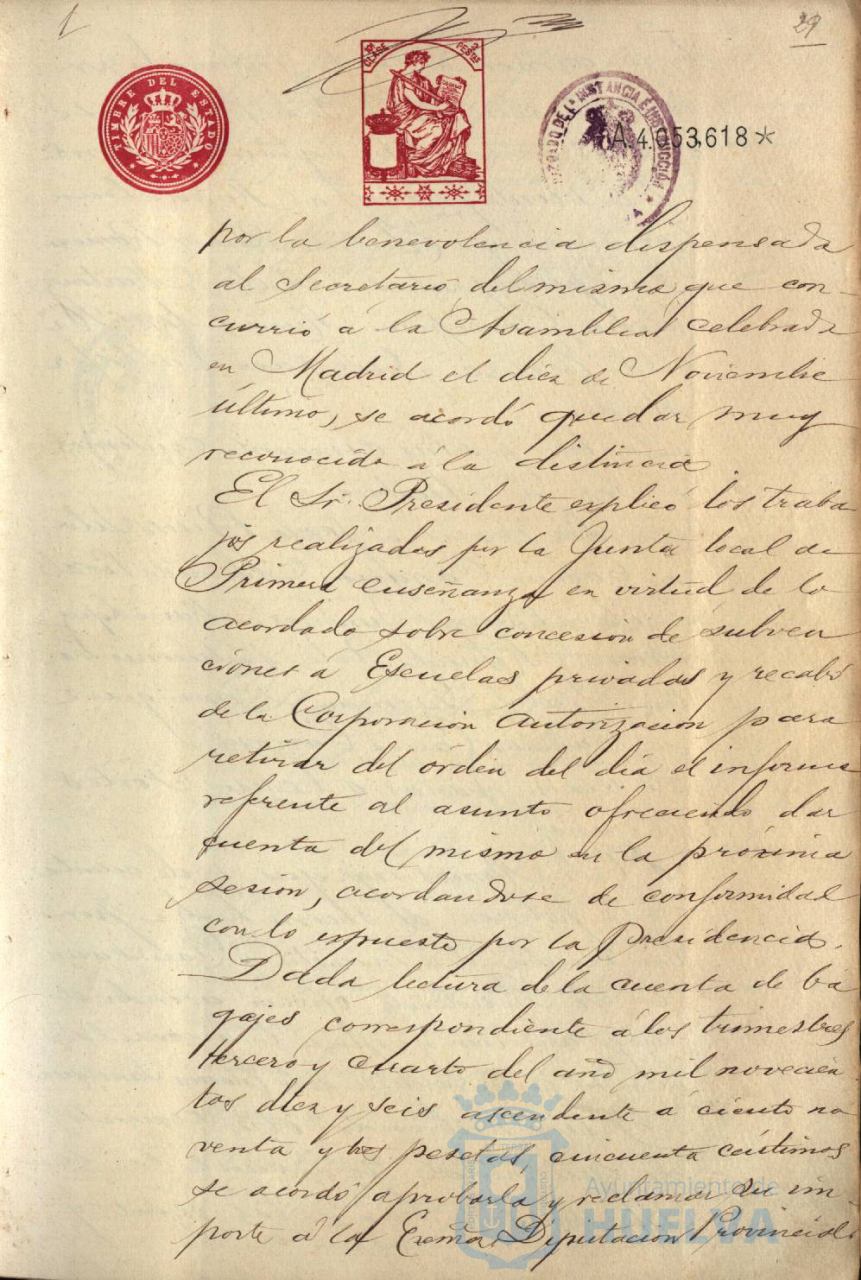 1
29
TIMBRE DEL ESTADO
10ª CLASE
2 PESTAS
JUZGADO DE 1ª INSTANCIA E INSTRUCCION
A.4.053.618*
por la benevolencia dispensada
al Secretario del mismo que con-
currió á la Asamblea celebrada
en Madrid el diez de Noviembre
último, se acordó quedar muy
reconocido á la distinción
El Sr. Presidente explicó los traba
jos realizados por la Junta local de
Primera enseñanza en virtud de lo
acordado sobre concesión de subven
ciones á Escuelas privadas y recabó
de la Corporación autorización para
retirar del órden del día el informe
referente al asunto ofreciendo dar
cuenta del mismo en la próxima
sesión, acordandose de conformidad
con lo expuesto por la Presidencia.
Dada lectura de la cuenta de ba
gajes correspondiente á los trimestres
tercero y cuarto del año mil novecien
tos diez y seis ascendente á ciento no
venta y tres pesetas, cincuenta céntimos
se acordó aprobarla y reclamar su im
porte á la Excma. Diputación Provincial.
Ayuntamiento de
HUELVA